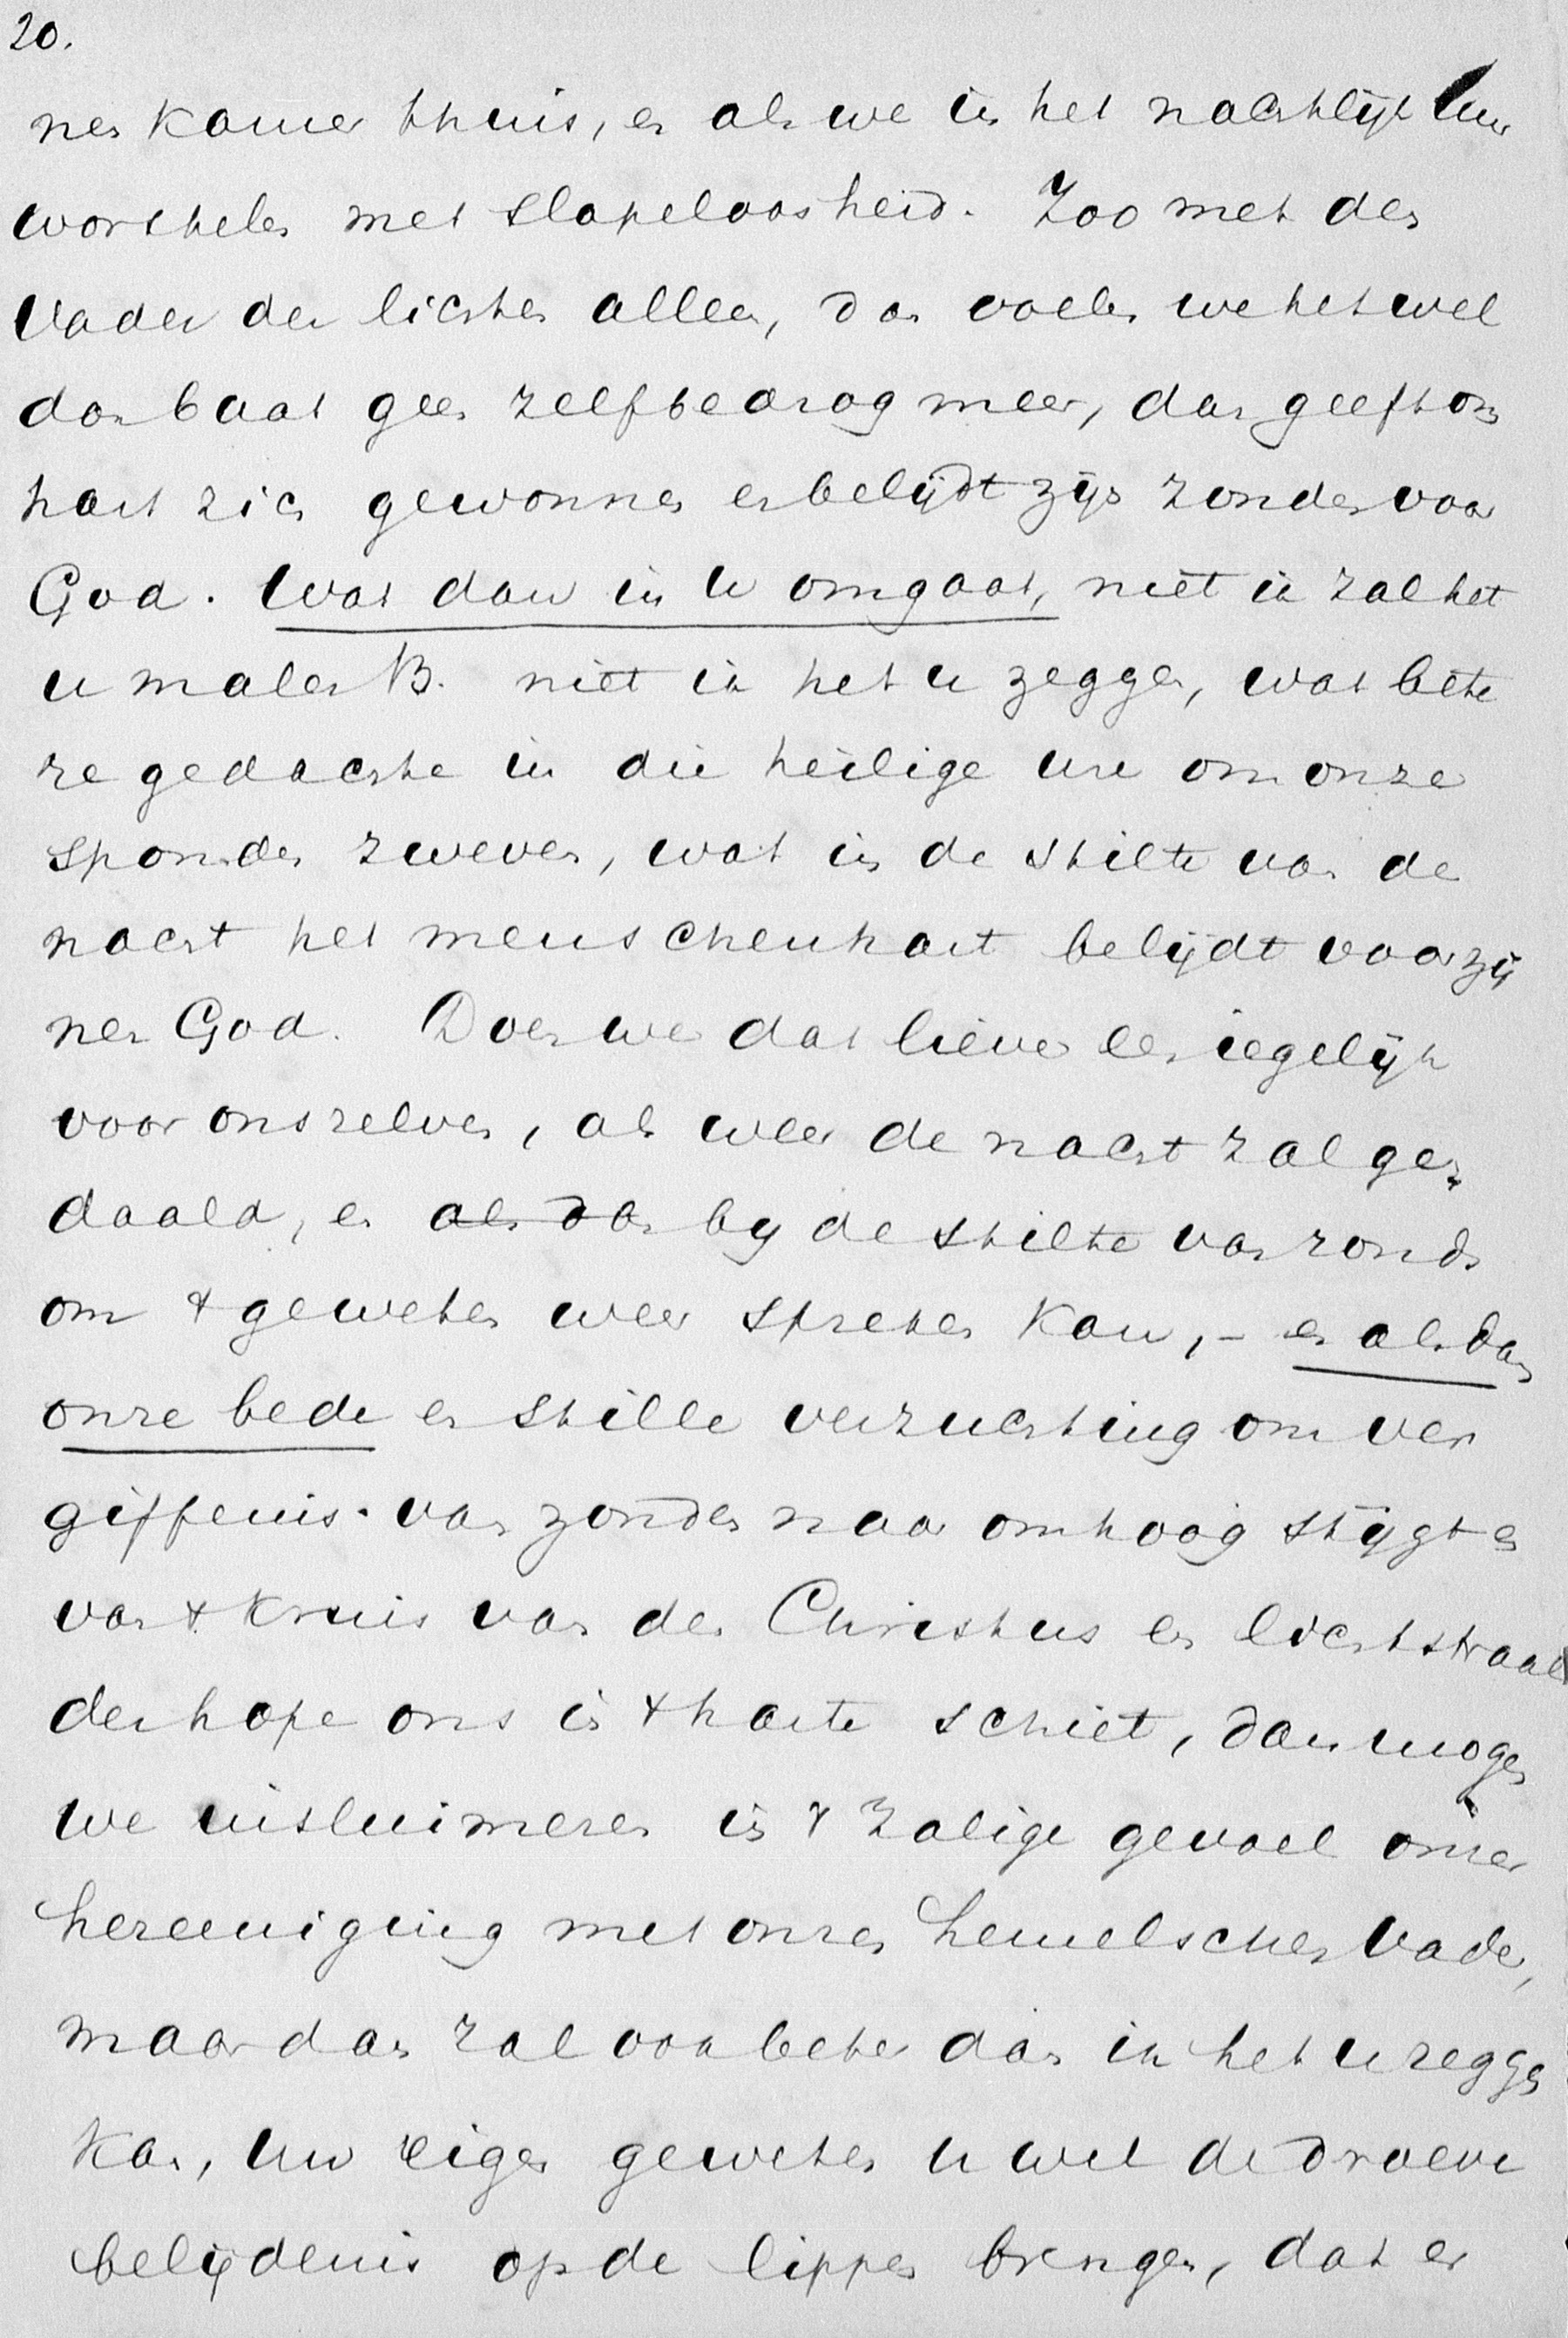 20.
nen kamer thuis, en als we in het nachtlijk uur
worstelen met slapeloosheid. Zoo met den
Vader der lichten alleen, dan voelen we het wel
dan baat geen zelfbedrog meer, dan geeft ons
hart zich gewonnen en belijdt zijn zonden voor
God. Wat dan in u omgaat, niet ik zal het
u malen B. niet ik het u zeggen, wat bete
re gedachte in die heilige ure om onze
sponden zweven, wat in de stilte van de
nacht het menschenhart belijdt voor zij
nen God. Doen we dat liever een iegelijk
voor onszelven, als weer de nacht zal ge
daald, en als dan bij de stilte van rond
om t geweten weer spreken kan, - en als dan
onze bede en stille verzuchting om ver
giffenis van zonden naar omhoog stijgt en
van t kruis van den Christus een lichtstraal
der hope ons in t harte schiet, dan mogen
we insluimeren in t zalige gevoel onzer
hereeniging met onzen hemelschen Vader,
maar dan zal ook beter dan ik het u zeggen
kan, uw eigen geweten u wel de droeve
belijdenis op de lippen brengen, dat er